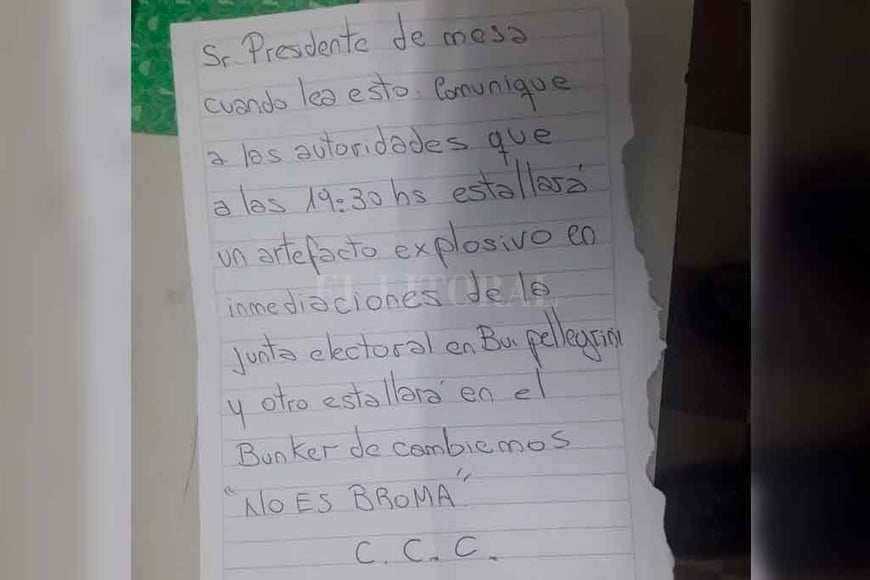 Sr. Presdente de mesa
cuando lea esto. Comunique
a las autoridades que
a las 19:30 hs estallará
un artefacto explosivo en
inmediaciones de la
Junta electoral en Bv. pellegrini
y otro estallará en el
Bunker de cambiemos
"NO ES BROMA"
C. C. C.
EL LITORAL